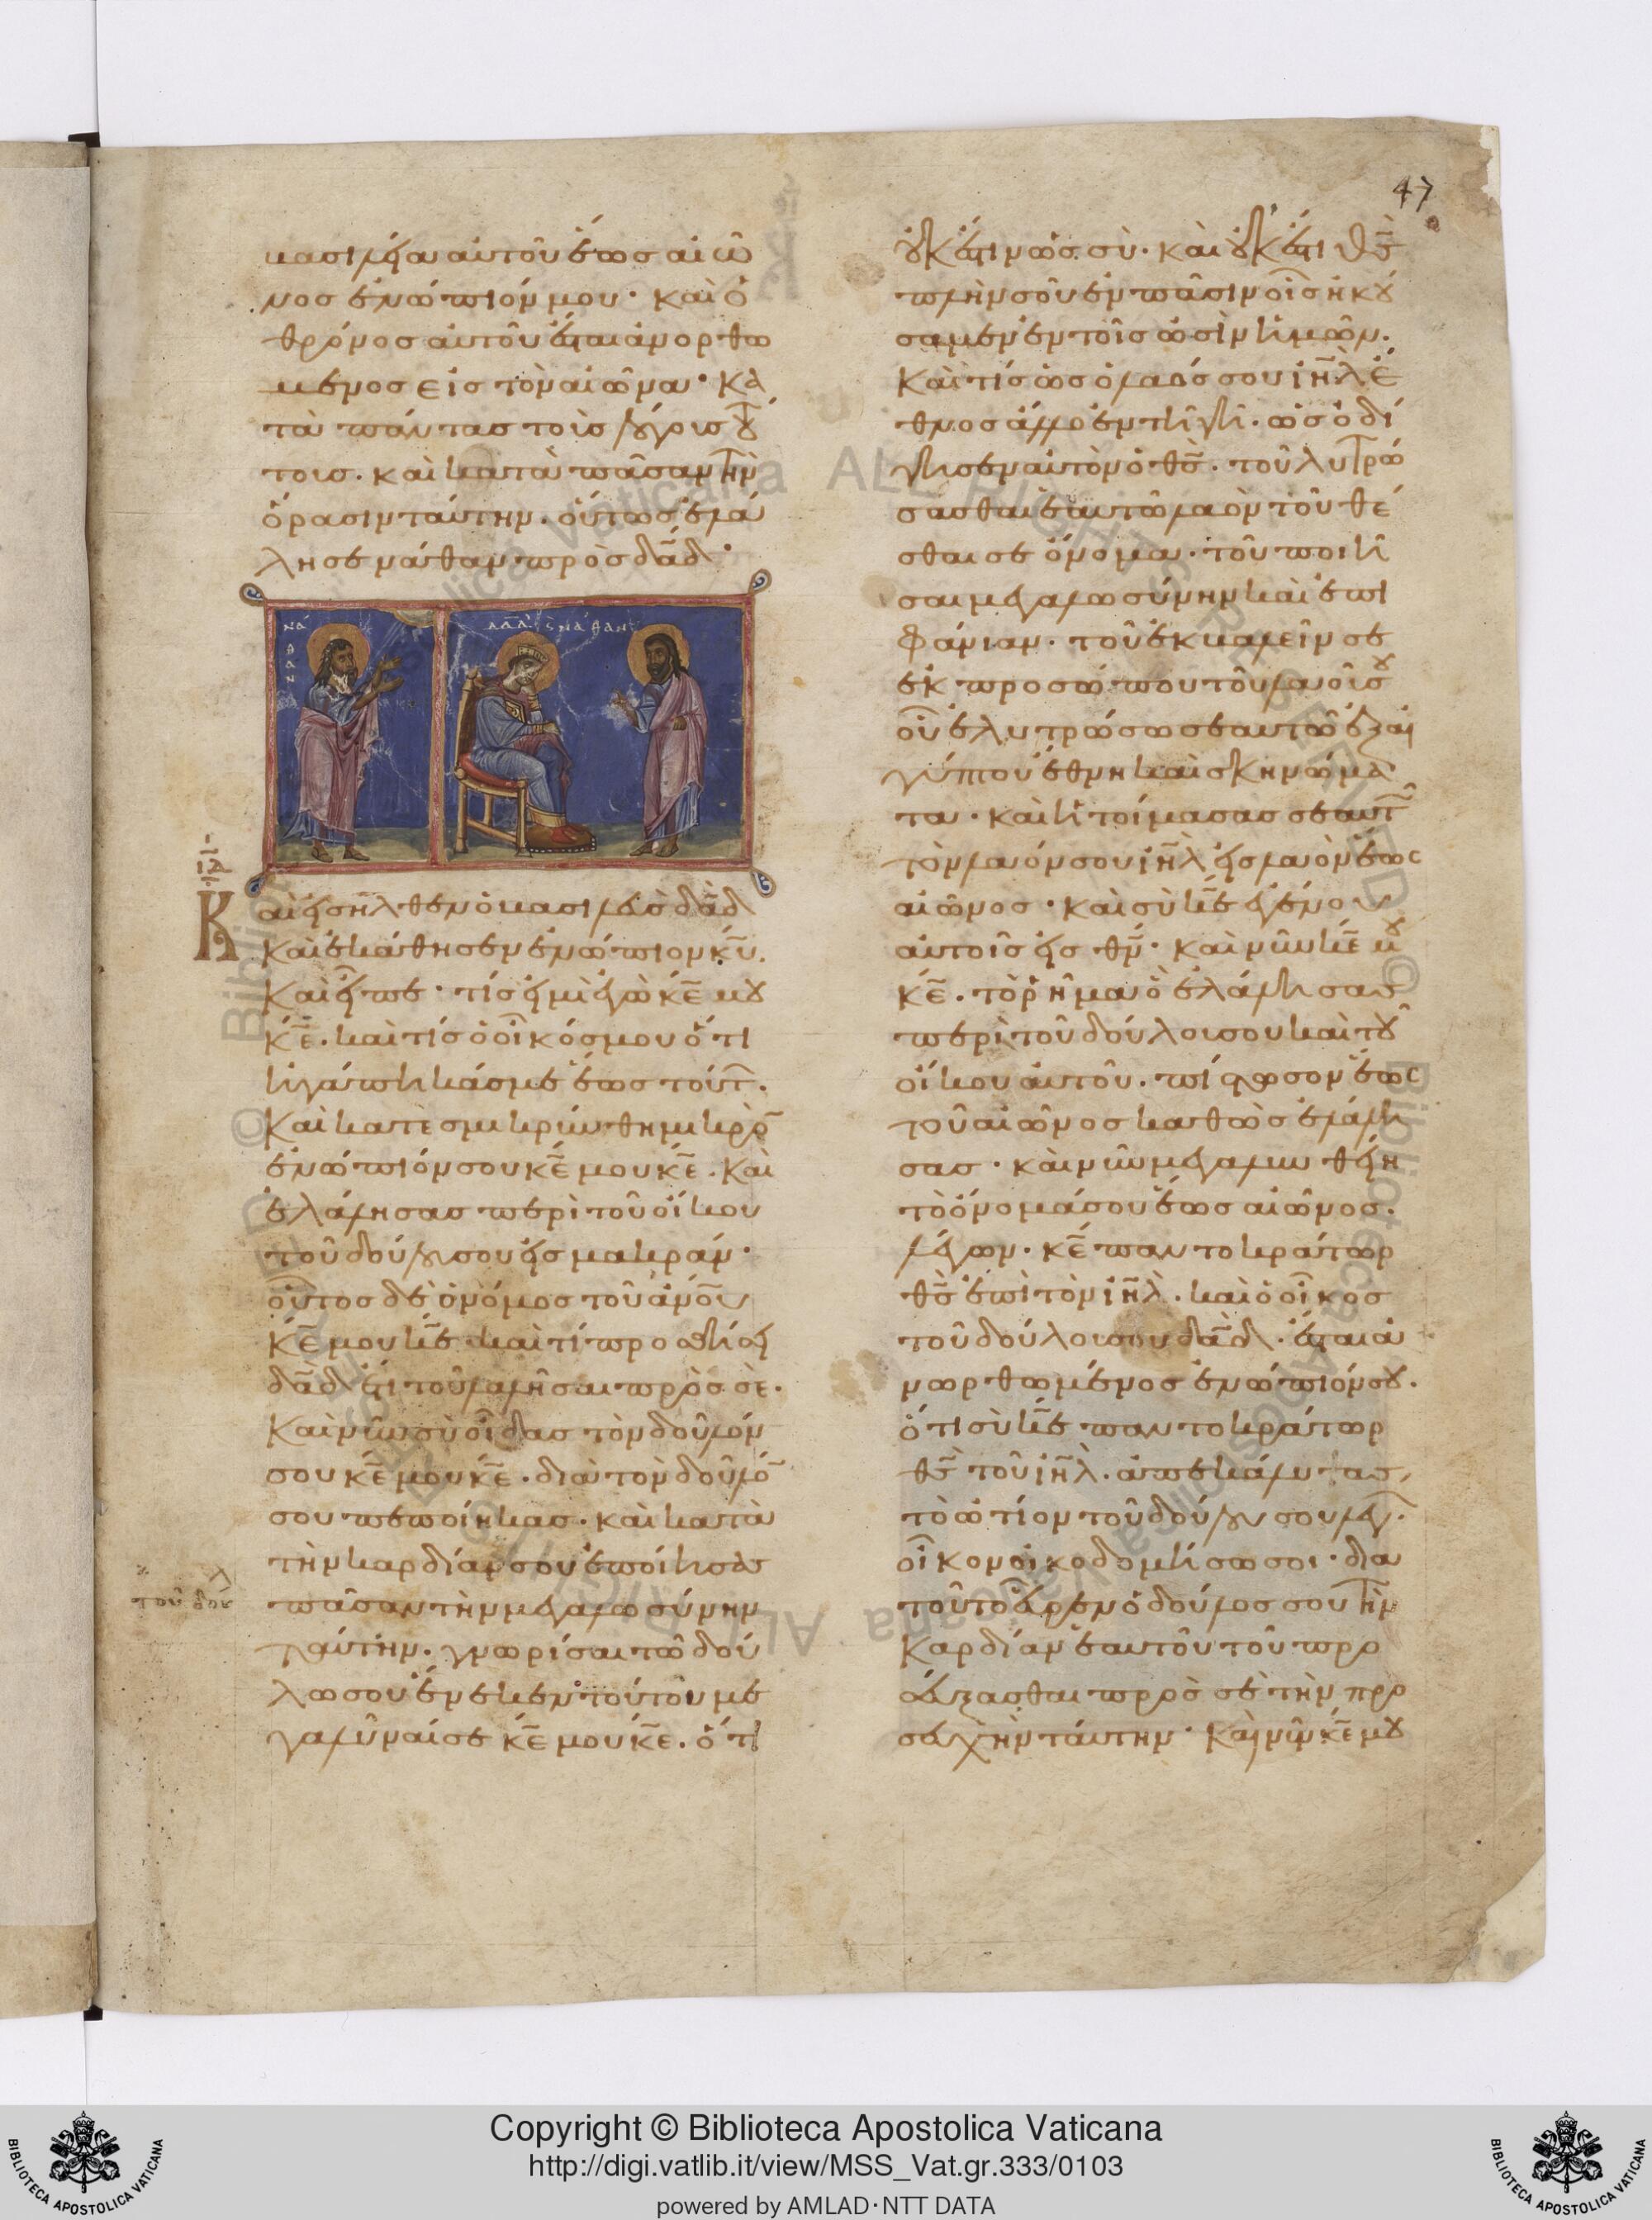 47
βασιλεία αὐτοῦ ἕως αἰῶ
νος ἐνώπιόν μου· καὶ ὁ
θρόνος αὐτοῦ ἔσται ἀνορθω
μένος εἰς τὸν αἰῶνα· κα
τὰ πάντας τοὺς λόγους τού
τους. καὶ κατὰ πᾶσαν τὴν
ὅρασιν ταύτην. οὕτως ἐλά
λησε νάθαν πρὸς δᾱδ·
ΝΑ
Θ
Α
Ν
ΔΑΔ ΝΑΘΑΝ
ιδ
Καὶ εἰσῆλθεν ὁ βασιλεὺς δᾱδ
καὶ ἐκάθησεν ἐνώπιον κῡ.
καὶ εἶπε· τίς εἰμὶ ἐγὼ κε̄ μου
κε̄. καὶ τίς ὁ οἶκός μου ὅτι
ἠγάπηκάς με ἕως τούτ.
καὶ κατεσμικρύνθην μικρὸ
ἐνώπιόν σου κε̄ μου κε̄. καὶ
ἐλάλησας περὶ τοῦ οἴκου
τοῦ δούλου σου εἰς μακράν·
οὗτος δὲ ὁ νόμος τοῦ ἀνου
κε̄ μου κε̄ καὶ τί προσθήσει
δᾱδ ἔτι τοῦ λαλῆσαι πρὸς σέ.
καὶ νῦν σὺ οἶδας τὸν δοῦλόν
σου κε̄ μου κε̄. διὰ τὸν δοῦλό
σου πεποίηκας. καὶ κατὰ
τὴν καρδίαν σου ἐποίησας
πᾶσαν τὴν μεγαλωσύνην
ταύτην. γνωρίσαι τῶ δού
λω σου ἕνεκεν τούτου με
γαλῦναί σε κε̄ μου κε̄. ὅτι
τοῦ δου
οὐκ ἔστιν ὡς σὺ. καὶ οὐκ ἔστι θς̄
πλὴν σοῦ ἐν πᾶσιν οἷς ἠκού
σαμεν ἐν τοῖς ὠσὶν ἡμῶν.
καὶ τίς ὡς ὁ λαός σου ιηλ ἔ
θνος ἄλλο ἐν τῆ γῆ. ὡς ὁδή
γησεν αὐτὸν ὁ θς̄. τοῦ λυτρώ
σασθαι ἑαυτῶ λαὸν τοῦ θέ
σθαι σε ὄνομα. τοῦ ποιῆ
σαι μεγαλωσύνην καὶ ἐπι
φάνιαν. τοῦ ἐκβαλεῖν σε
ἐκ προσώπου τοῦ λαοῦ σου
οὗ ἐλυτρώσω σεαυτῶ ἐξ αἰ
γύπτου ἔθνη καὶ σκηνώμα
τα. καὶ ἡτοίμασας σεαυτ
τὸν λαόν σου ιηλ εἰς λαὸν ἕως
αἰῶνος. καὶ σὺ κε̄ ἐγένου
αὐτοῖς εἰς θν̄. καὶ νῦν κε̄ μου
κε̄. τὸ ῥῆμα ὃ ἐλάλησας
περὶ τοῦ δούλου σου καὶ τοῦ
οἴκου αὐτοῦ. πίστωσον ἕως
τοῦ αἰῶνος καθὼς ἐλάλη
σας. καὶ νῦν μεγαλυνθείη
τὸ ὄνομά σου ἕως αἰῶνος.
λέγων. κε̄ παντοκράτωρ
θς̄ ἐπὶ τὸν ιηλ. καὶ ὁ οἶκος
τοῦ δούλου σου δᾱδ. ἔσται ἀ
νωρθωμένος ἐνώπιόν σου.
ὅτι σὺ κε̄ παντοκράτωρ
θς̄ τοῦ ιηλ. ἀπεκάλυψας
τὸ ὠτίον τοῦ δούλου σου λέγ.
οἶκον οἰκοδομήσω σοι. δια
τοῦτο εὗρεν ὁ δοῦλος σου τὴν
καρδίαν ἑαυτοῦ τοῦ προ
σεύξασθαι πρὸς σὲ τὴν προ
σευχὴν ταύτην· καὶ νῦν κε̄ μου
Copyright © Biblioteca Apostolica Vaticana
http://digi.vatlib.it/view/MSS_Vat.gr.333/0103
powered by AMLAD·NTT DATA
BIBLIOTECA APOSTOLICA VATICANA
BIBLIOTECA APOSTOLICA VATICANA